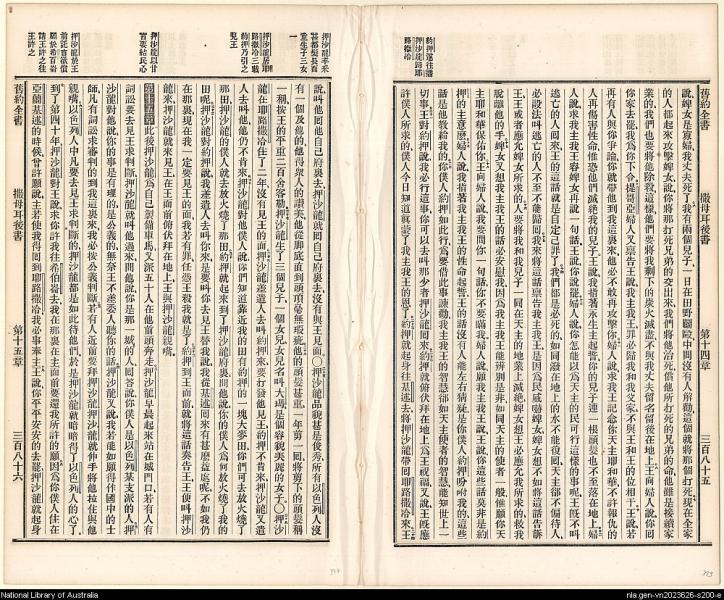 約押遣往基
押沙龍歸耶
路撒冷
說婢女是寡婦我丈夫死了我有兩個兒子一日在田野毆鬥中間沒有人解勸這個就將那個打死現在全家
的人都起來攻擊婢女說你將那打死兄弟的交出來我們將他治死償他所打死的兄弟的命他雖是接續家
業的我們也要將他除滅這樣他們要將我剩下的炭火滅盡不與我丈夫留名留後在地上王向婦人說你回
你家去罷我為你下令提哥亞婦人又稟告王說我主我王罪必歸我和我父家不與王和王的位相干王說若
再有人與你爭論你就帶他到我這裏來他必不敢再攻擊你婦人說求我主我王記念你天主耶和華不許報仇的
人再傷害性命恐怕他們滅絕我的兒子王說我指著永生主起誓你的兒子連一根頭髮也不至落在地上婦
人說求我主我王容婢女再說一句話王說你說罷婦人說你怎能以為天主的民可行這樣的事呢王既不叫
逃亡的人回來王的這話就是自定己罪了我們都是必死的如同潑在地上的水不能復回天主都不偏待人
必設法叫逃亡的人不至不能歸回我來將這話稟告我主我王是因為民威嚇婢女婢女想不如將這話告訴
王王或者應允婢女所求的人要將我和我兒子一同在天主的地業上滅絕婢女想王必應允我所求的救我
脫離他的手婢女又想我主我王的話必安慰我因為我主我王能辨別是非如同天主的使者一般惟願你天
主耶和華保佑你王向婦人說我要問你一句話你不要瞞我婦人說願我主我王說王說你這些話莫非是約
押的主意麽婦人說我指著我主我王的性命起誓王的話沒有人能左右猜疑是你僕人約押吩咐我的這些
話是他教給我的你僕人約押如此行為要借此事諫勸我主我王的智慧卻如天主使者的智慧能知世上一
切事王對約押說我必行這事你可以去叫那少者押沙龍回來約押就俯伏拜在地上為王祝福又說王既應
許僕人所求的僕人今日知道真蒙了我主我王的恩了約押就起身往基述去將押沙龍帶回耶路撒冷來王
舊約全書
撒母耳後書
第十四章
三百八十五
押沙龍丰采
甚都髮長而
重生子三女
一
押沙龍居耶
路撒冷三載
約押乃引之
覲王
押沙龍以甘
言要結民心
押沙龍於王
前託言欲償
願於希百崙
請王許之往
王許之
說叫他回他自己府裏去押沙龍就回自己府裏去沒有與王見面○押沙龍的容貌甚是俊秀所有以色列人沒
有一個及他的他得眾人的讚美他從腳底直到頭頂毫無瑕疵他的頭髮甚重一年剪一回將剪下的頭髮稱
一稱按王的平重二百舍客勒押沙龍生了三個兒子一個女兒女兒名叫大瑪是個容貌美麗的女子○押沙
龍在耶路撒冷住了二年沒有見王的面押沙龍差遣人去叫約押來要打發他見王約押不肯來押沙龍又遣
人去叫他他仍不肯來押沙龍對他僕人說你們知道靠近我的田有約押的一塊大麥田你們可去放火燒了
那田押沙龍的僕人就去放火燒了那田約押就起來到了押沙龍府裏問他說你的僕人為何放火燒了我的
田呢押沙龍對約押說我差遣人去叫你來是要叫你去見王替我說我從基述回來有甚麽益處呢不如我仍
在那裏現在我一定要見王的面我若有罪任憑王殺我就是了約押到王面前就將這話奏告王王便叫押沙
龍來押沙龍就來見王在王面前俯伏拜在地上王與押沙龍親嘴
第十五章此後押沙龍為自己製備車馬又派五十人在他前頭奔走押沙龍早晨起來站在城門口若有人有
詞訟要去見王求判斷押沙龍就叫他過來問他說你是那一城的人回答說你僕人是以色列某支派的人押
沙龍對他說你的事是有理的是公義的無奈王不差委人聽你的話押沙龍又說我若能如願得作國中的士
師凡有詞訟求審判的到我這裏來我必按公義判斷若有人近前要拜押沙龍押沙龍就伸手將他拉住與他
親嘴以色列人中凡要去見王求判斷的押沙龍都是如此待他們於是押沙龍就暗暗得了以色列人的心了
到了第四十年押沙龍對王說求你許我往希伯崙去我在那裏在主面前要還我所許的願因為你僕人住在
亞蘭基述的時候曾許願說主若使我得回到耶路撒冷我必事奉主王說你平平安安的去罷押沙龍就起身
舊約全書
撒母耳後書
第十五章
三百八十六
National Library of Australia
nla.gen-vn2023626-s200-e